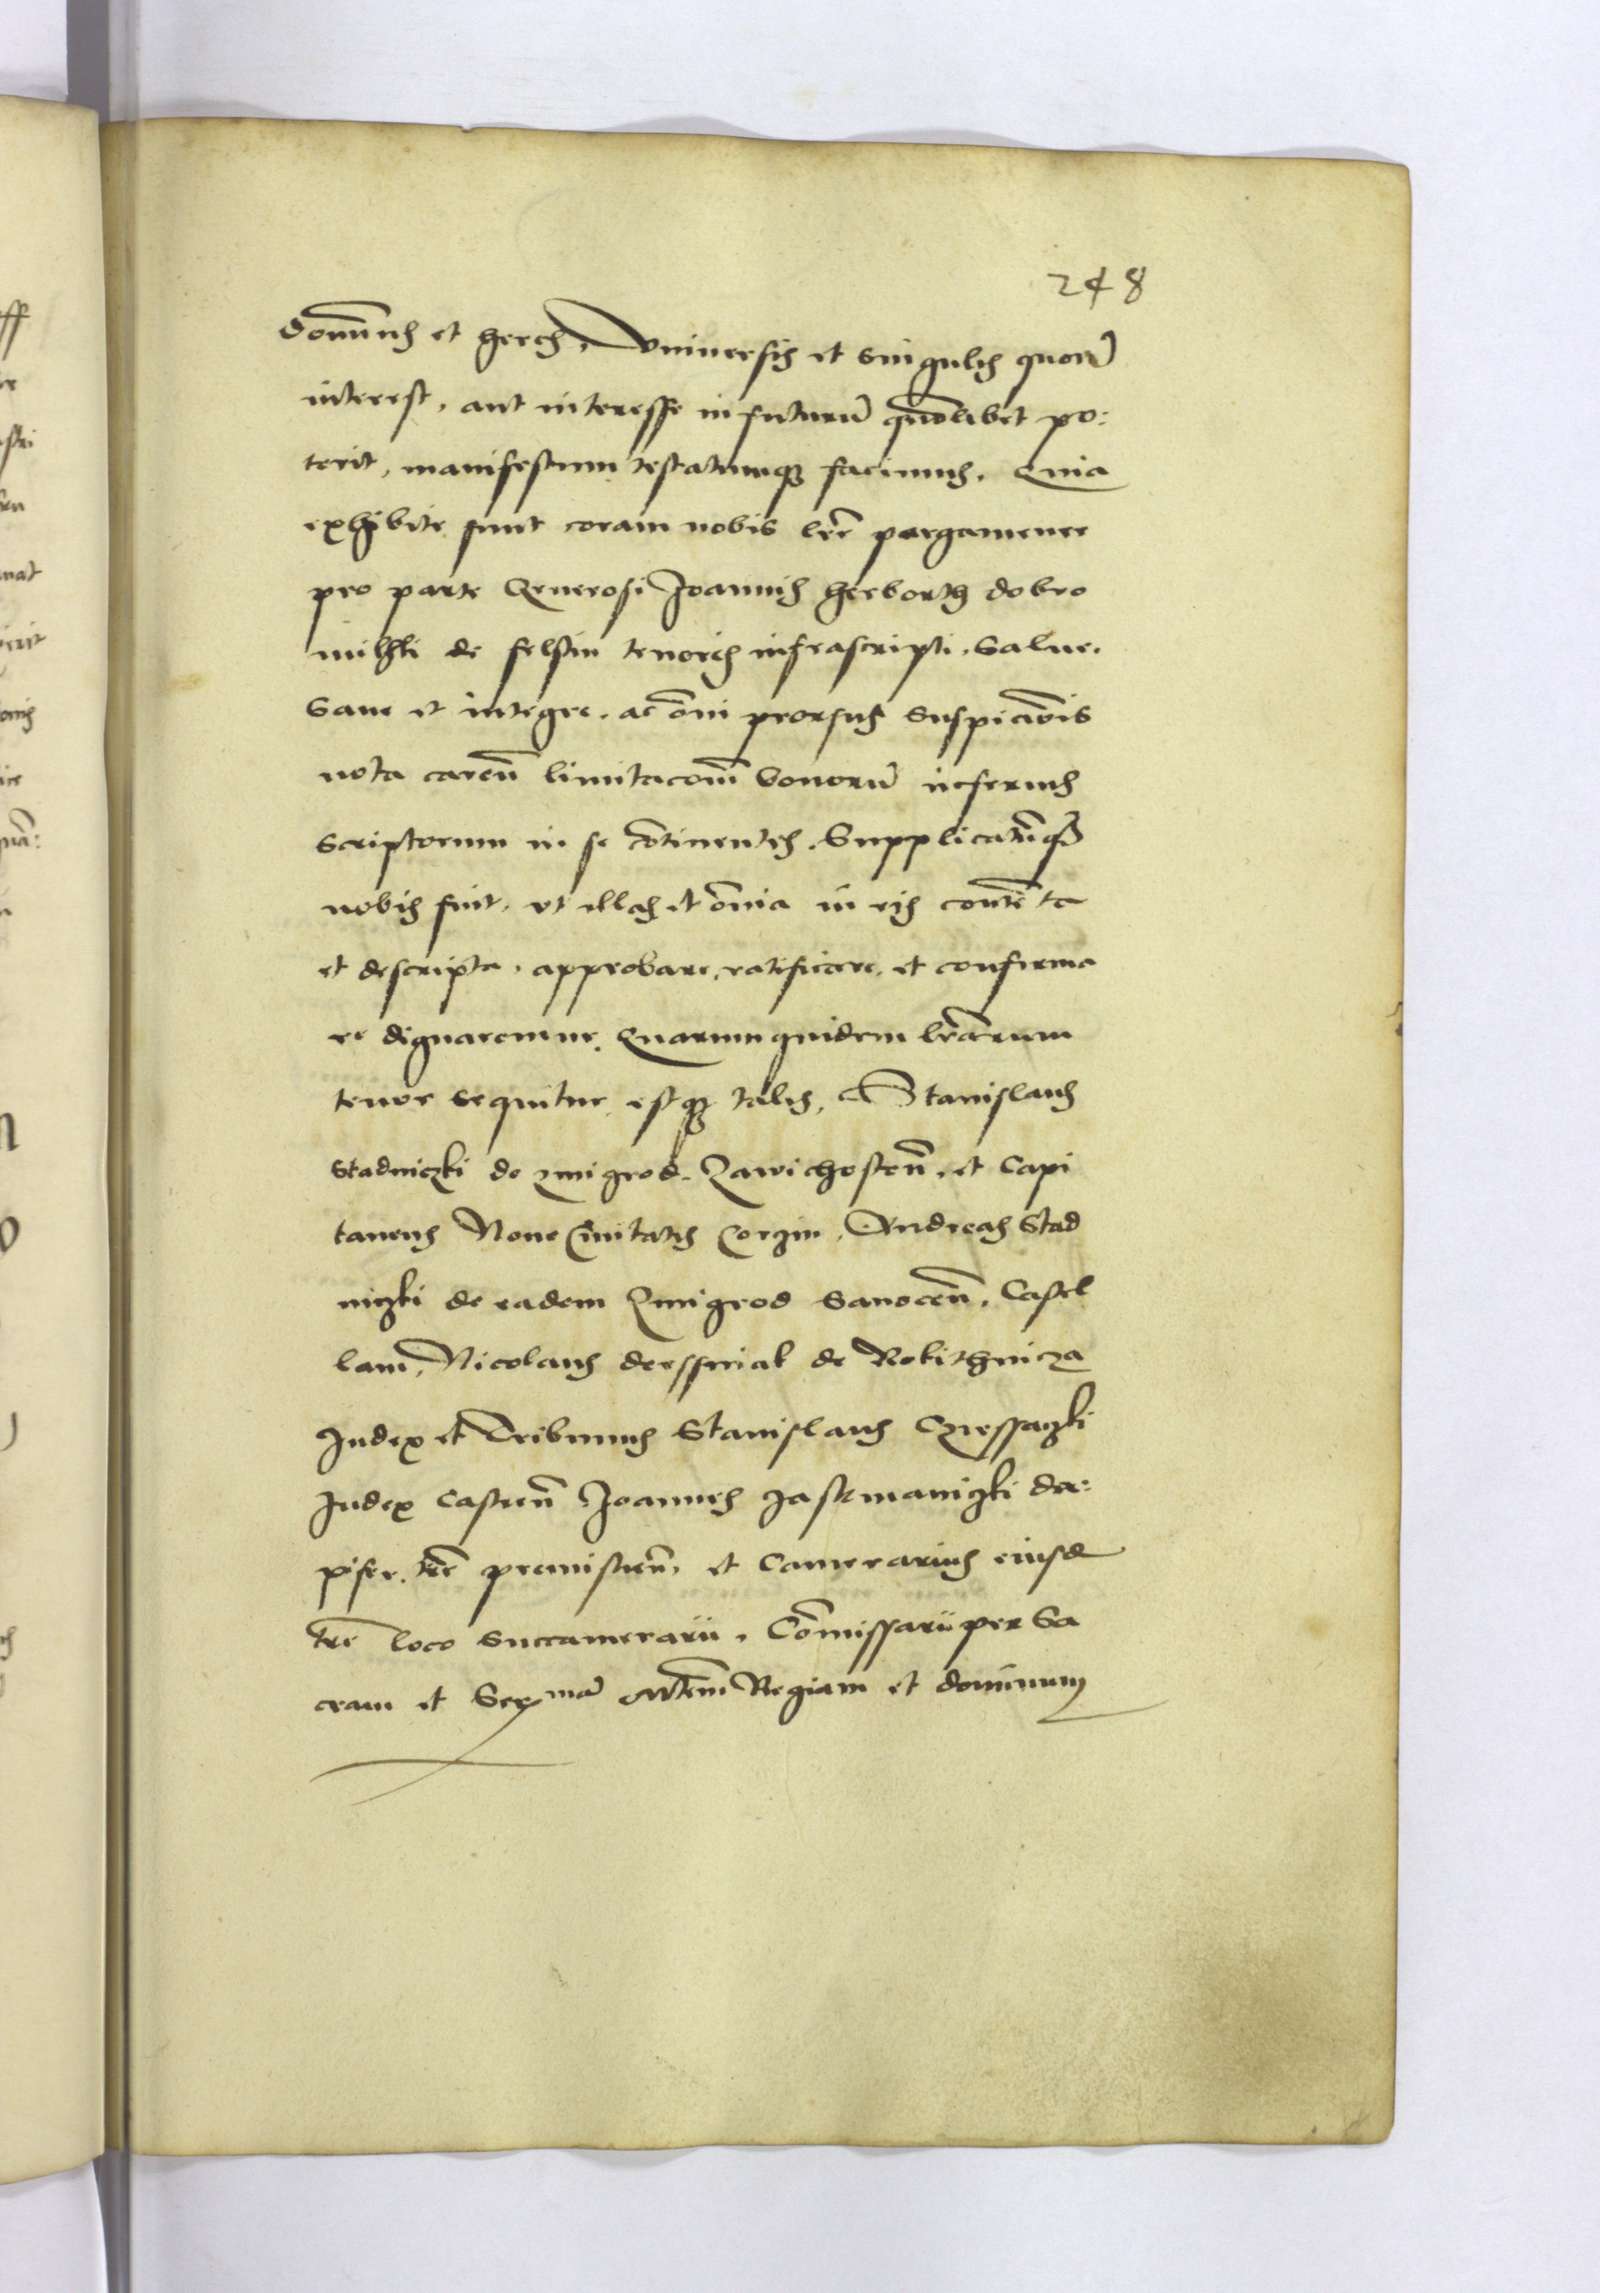 248
Dominus et heres, Universis et singulis quorū
interest, aut interesse in futurū quōlibet po:
terit, manifestum testatumq; facimus. Quia
exhibite sunt coram nobis lr̄e pargamenee
pro parte Generosi Joannis Herborth dobro
milski de felstin tenoris infrascripti. Salue.
Sane et integre. ac om̄i prorsus suspicio͞is
nota caren̄ limitacōm̄ bonorū inferius
scriptorum in se cōtinentes. Supplicatūq;
nobis fuit, ut illas et om̄ia in eis contēta
et descripta, approbare, ratificare, et confirma
re dignaremur. Quarum quidem lr̄arum
tenor sequitur estq; talis, Stanislaus
Stadniczki de zmigrod Zawichosten̄, et Capi
taneus Noue Ciuitatis Corzin, Andreas Stad
niczki de eadem Zmigrod Sanocen̄, Castel
lani, Nicolaus derssniak de Rokithnicza
Judex et Tribunus Stanislaus
Judex Castren̄ Joannes Jastmaniczki da:
pifer, tr̄e premislien̄, et Camerarius eiusd
tr̄e loco succamerarii, Cōmissarii per Sa
cram et Ser^mā M̄tem̄ Regiam et dominum